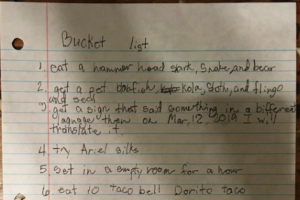 Bucket list
1. eat a hammer head sark, snake, and bear
2. get a pet dogfish kola, sloth, and flingo
and seal
3. get a sign that said something in a different
lagnage then on Mar, 12, 2019 I will
translate it
4 try Ariel silks
5 set in a empty room for a hour
6 eat 10 taco bell Dorito taco